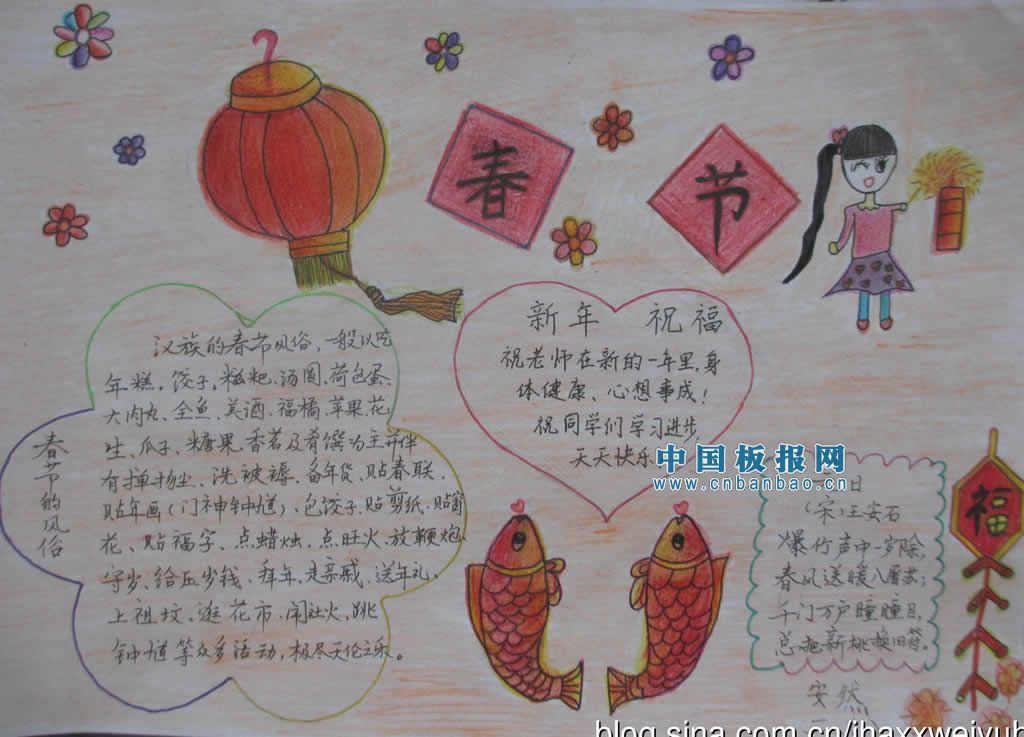 春 节
春节的风俗
汉族的春节风俗,一般以吃
年糕,饺子、糍粑、汤圆、荷包蛋、
大肉丸、全鱼、美酒、福橘、苹果、花
生、瓜子、糖果、香茗及肴馔为主并伴
有掸扬尘、洗被褥、备年货、贴春联、
贴年画(门神钟馗)、包饺子、贴剪纸、贴窗
花、贴福字、点蜡烛、点旺火、放鞭炮、
守岁、给压岁钱、拜年、走亲戚、送年礼、
上祖坟、逛花市、闹社火,跳
钟馗等众多活动,极尽天伦之乐。
新年 祝福
祝老师在新的一年里,身
体健康、心想事成!
祝同学们学习进步,
天天快乐
中国板报网
www.cnbanbao.cn
日
(宋)王安石
爆竹声中一岁除,
春风送暖入屠苏;
千门万户瞳瞳日,
总把新桃换旧符。
福
安然
blog.sina.com.cn/